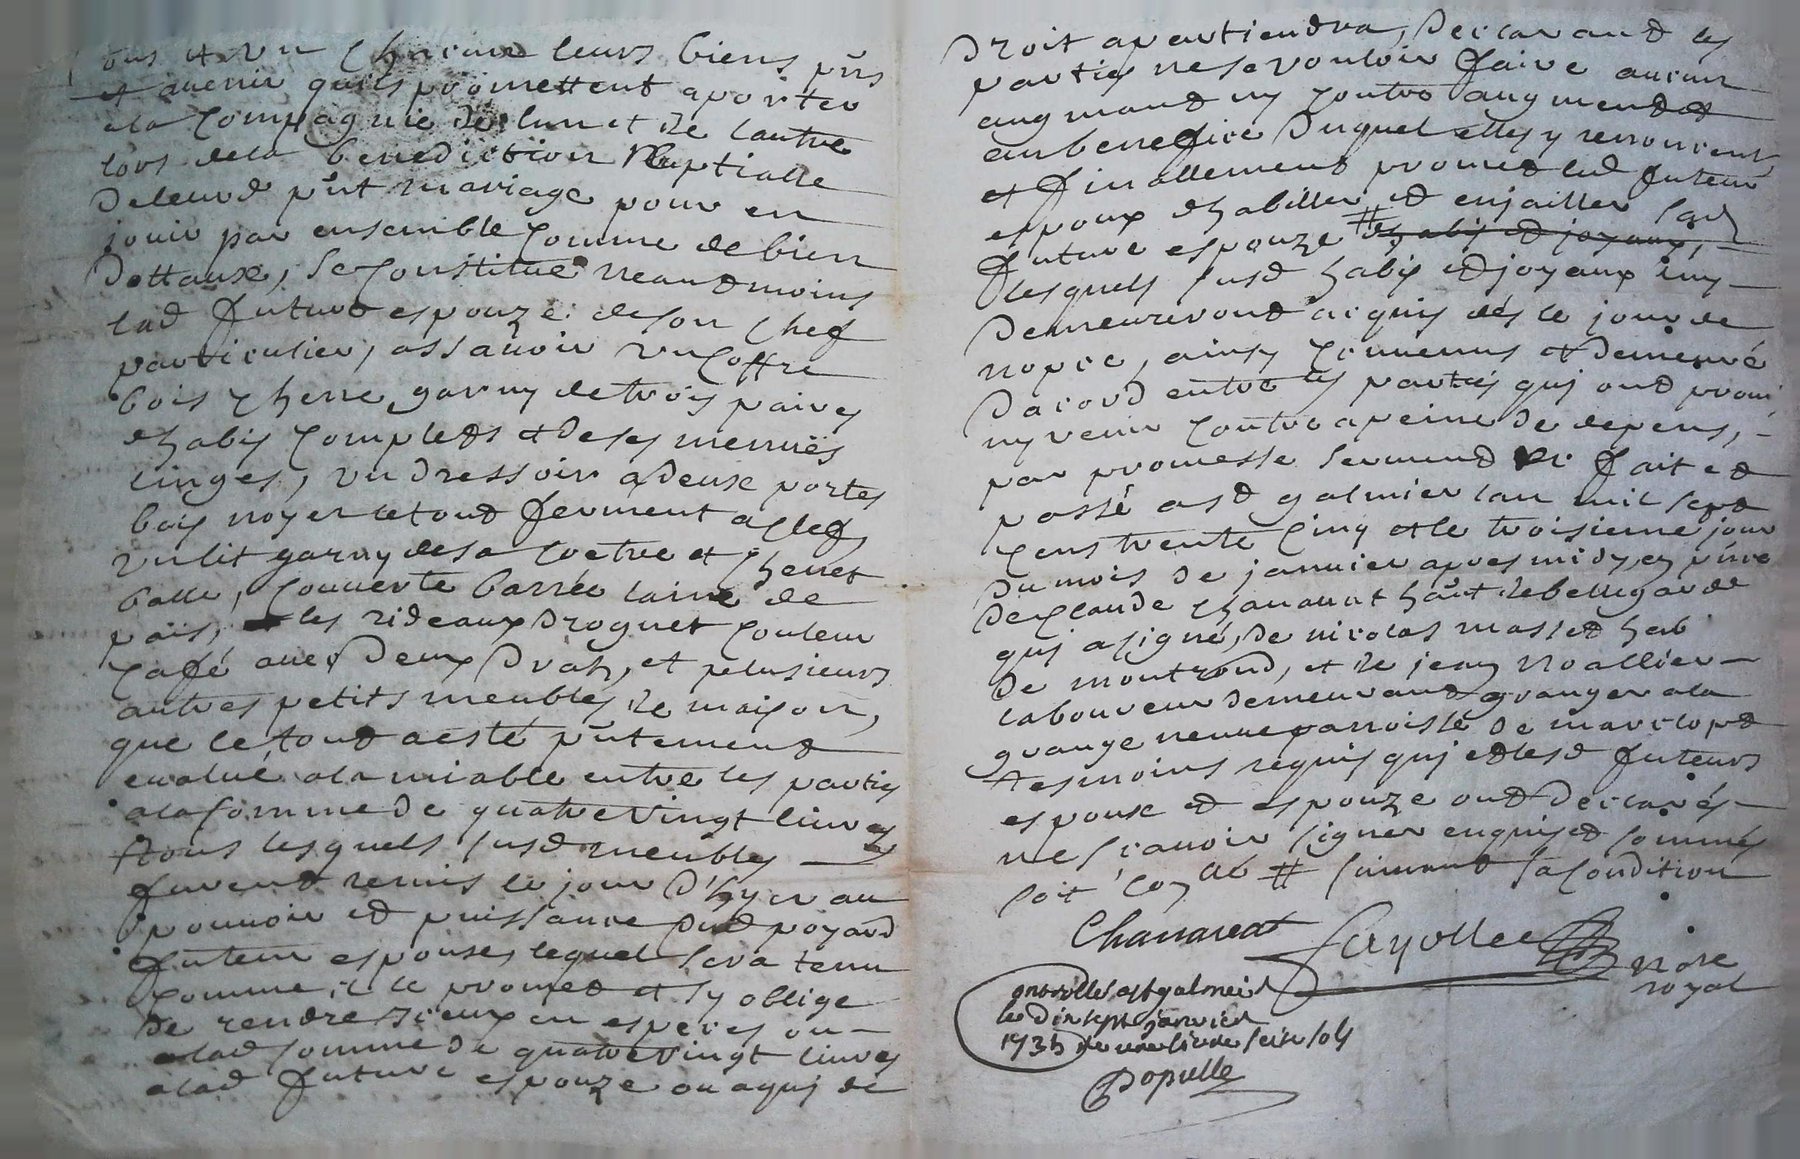 ous et un chacun leurs biens pñs
et avenir quils promettent aporter
a la compagnie de lun et de lautre
lors de la benediction Nuptialle
de leurd pñt mariage pour en
jouir par ensemble comme de bien
dottaux, se constitue neandmoins
lad future espouze de son chef
particulier, assavoir un coffre
bois chene garny de trois paires
dhabis complets et de ses menuës
linges, un dressoir a deux portes
bois noyer le tout ferment a clef
un lit garny de sa coetre et chevet
balle, couverte barrée laine de
païs, les rideaux droguet couleur
café avec deux drah, et plusieurs
autres petits meubles de maison,
que le tout a esté pñtement
evalué a lamiable entre les parties
a la somme de quatre vingt livres
tous lesquels susd meubles
furent remis le jour d'hyer au
pouvoir et puissance dud poyard
futeur espoux, lequel sera tenu
comme il le promet et sy oblige
de rendre iceux en especes ou
a lad somme de quatre vingt livres
a lad future espouze ou a qui de
droit apartiendra, declarand les
parties ne se vouloir faire aucun
augmand ny contre augmend et
au benefice duquel elles y renoncent
et finallement promet led futeur
espoux dhabiller et enjailler sad
future espouze # dhabis et joyaux,
lesquels susd habis et joyaux luy
demeureront acquis dés le jour de
nopce, ainsy convenus et demeuré
dacord entre les parties qui ont promi
ny venir contre a peine de depens,
par promesse serment &c fait et
passé a st galmier lan mil sept
cens trente cinq et le troisieme jour
du mois de janvier apres midy, en pñce
de claude chanavat hãnt de bellegarde
qui a signé, de nicolas masset hab
de montrond, et de jean noallier
laboureur demeurant granger a la
grange neuve parroisse de marclopt
tesmoins requis qui et lesd futeurs
espoux et espouze ont declarés
ne sçavoir signer enquis et sommés
soit coñlé # suivant sa condition
Chanavat Fayolle nore
royal
controllé a st galmier
le dix sept janvier
1735 Re une livre seize sols
Populle